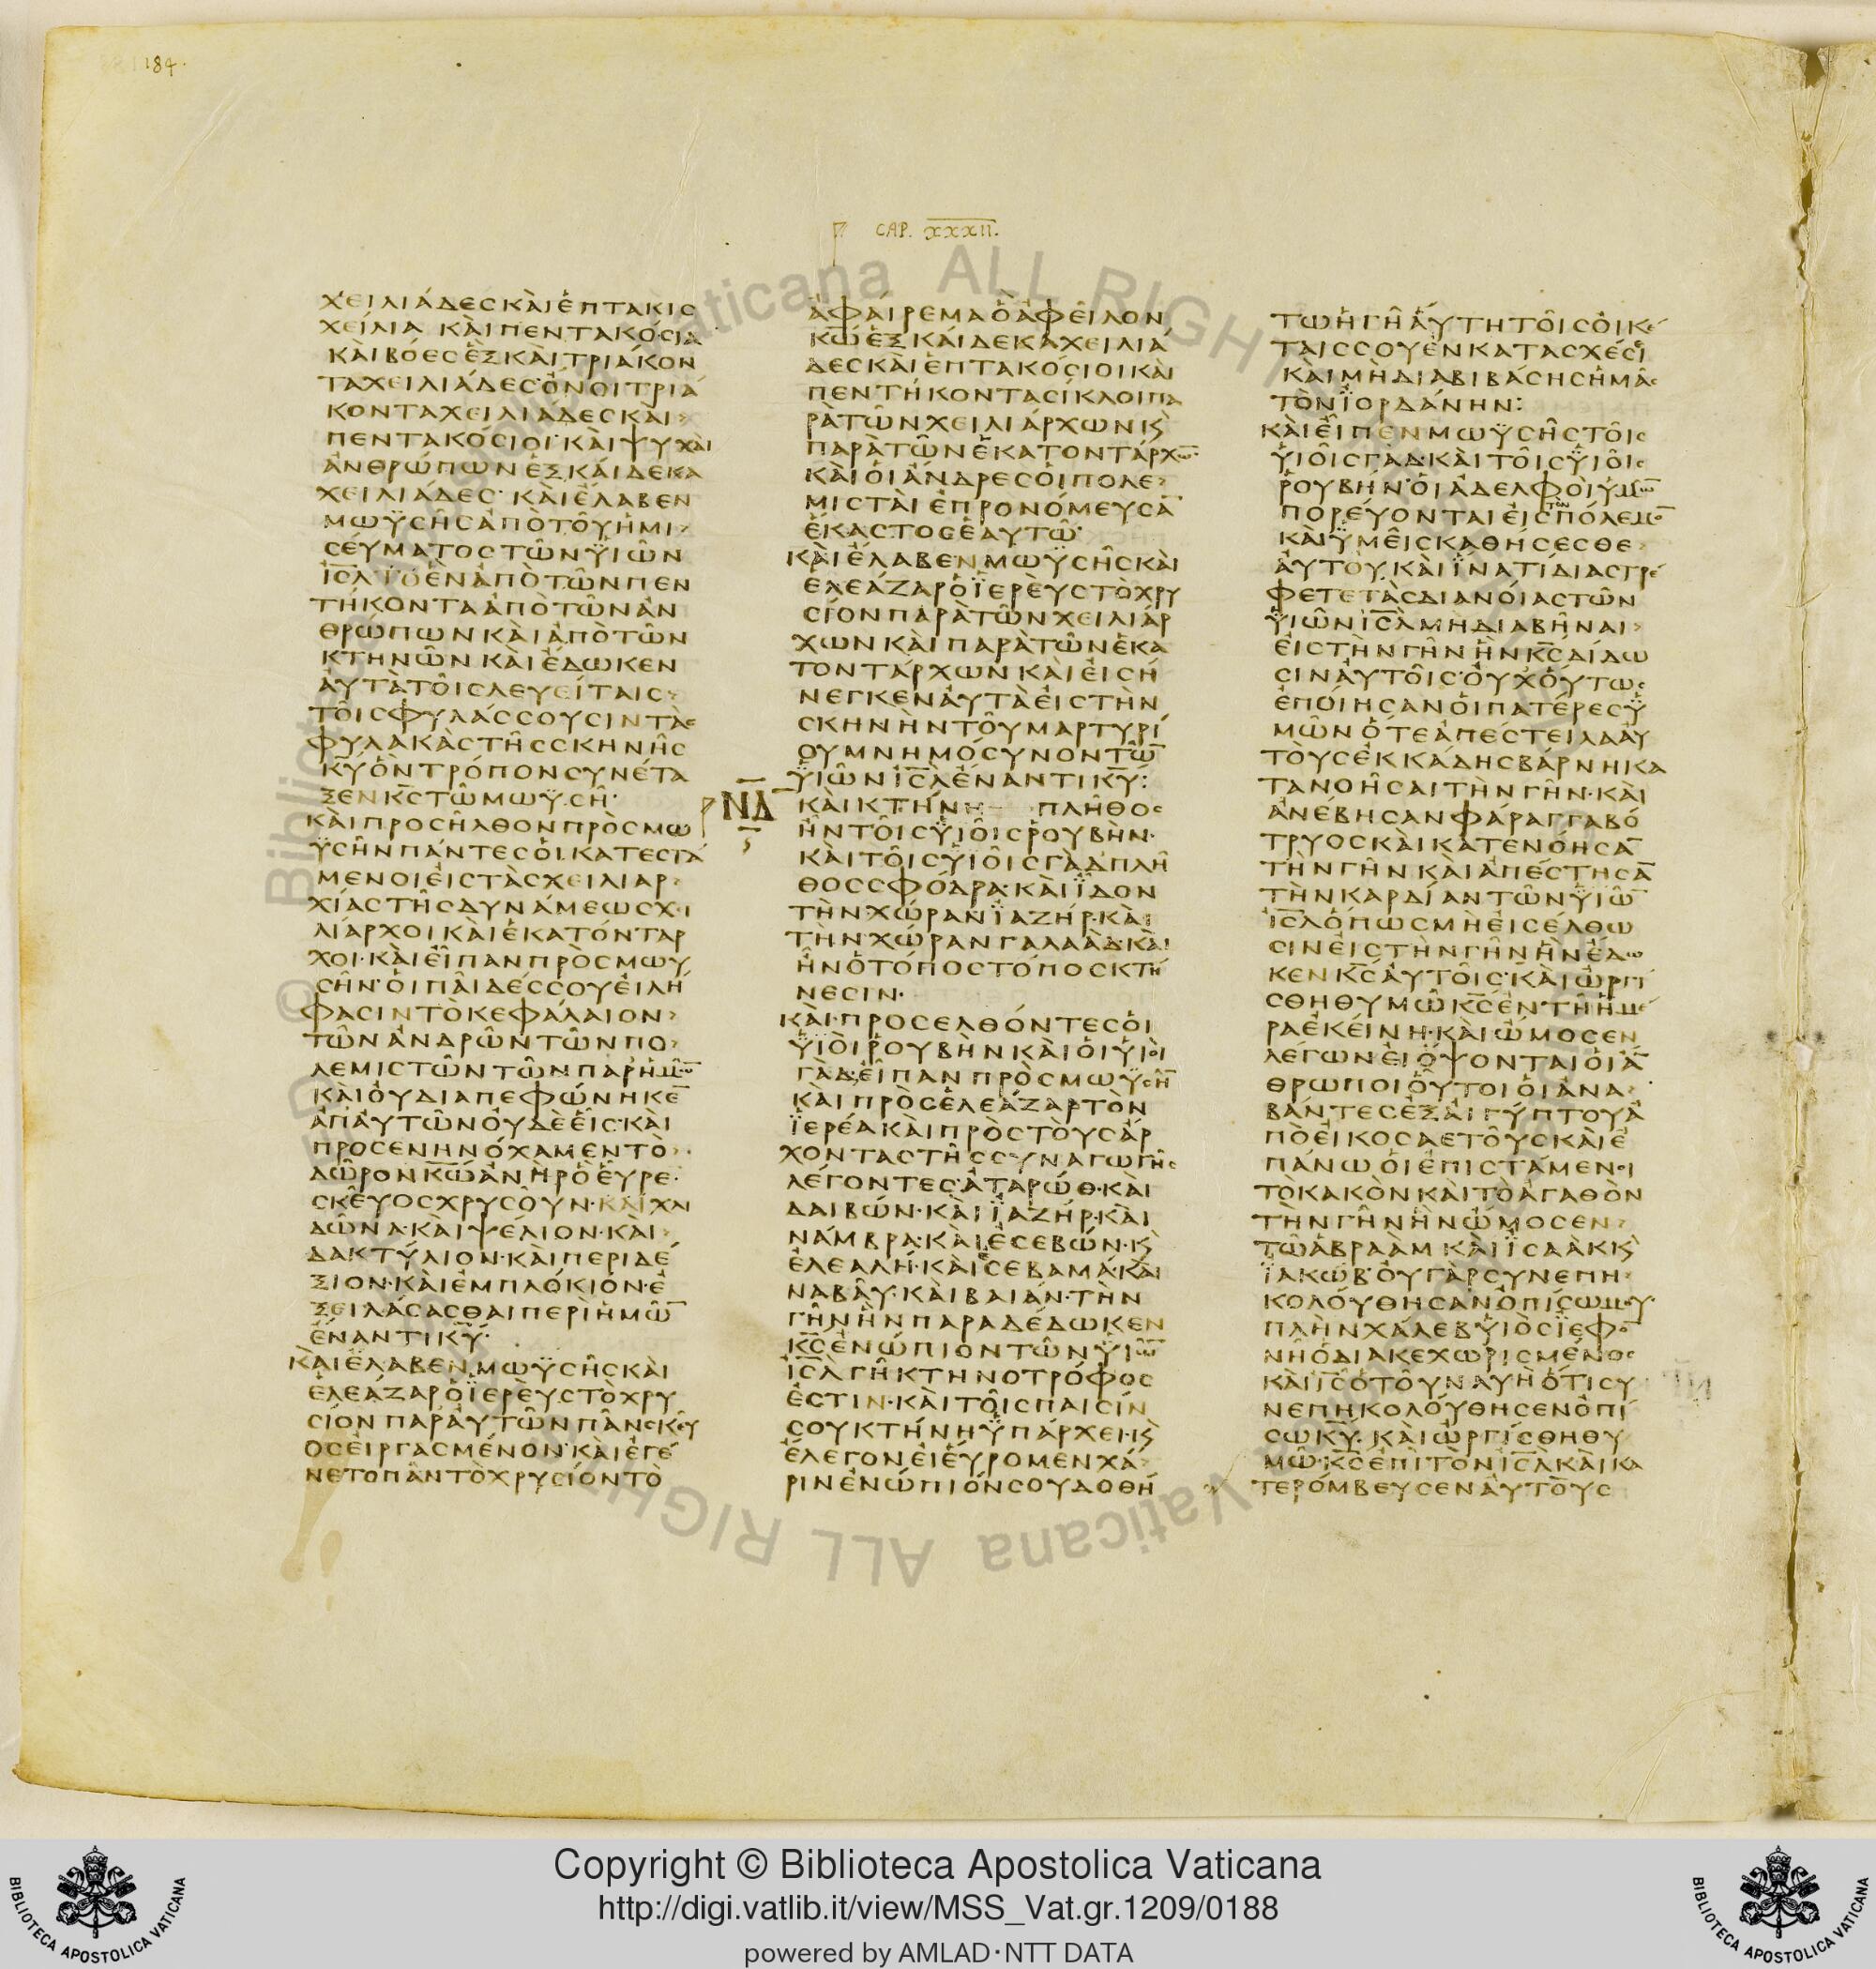 184.
CAP. XXXII.
χειλιάδες καὶ ἑπτακις
χείλια καὶ πεντακόσια
καὶ βόες ἓξ καὶ τριάκον
τα χειλιάδες· ὄνοι τριά
κοντα χειλιάδες καὶ ›
πεντακόσιοι· καὶ ψυχαὶ
ἀνθρώπων ἑξκαίδεκα
χειλιάδες· καὶ ἔλαβεν
μωϋσῆς ἀπὸ τοῦ ἡμι ›
σεύματος τῶν ϋἱῶν
ι̅σ̅λ̅ τὸ ἓν ἀπὸ τῶν πεν
τήκοντα ἀπὸ τῶν ἀν
θρώπων καὶ ἀπὸ τῶν
κτηνῶν καὶ ἔδωκεν
αὐτὰ τοῖς λευείταις ›
τοῖς φυλάσσουσιν τὰς
φυλακὰς τῆς σκηνῆς
κ̅υ̅ ὃν τρόπον συνέτα
ξεν κ̅ς̅ τῷ μωϋσῇ·
καὶ προσῆλθον πρὸς μω
ϋσῆν πάντες οἱ κατεστά
μενοι εἰς τὰς χειλιαρ ›
χίας τῆς δυνάμεως χι
λίαρχοι καὶ ἑκατόνταρ
χοι· καὶ εἶπαν πρὸς μωυ
σῆν· οἱ παῖδές σου εἰλή
φασιν τὸ κεφάλαιον ›
τῶν ἀνδρῶν τῶν πο ›
λεμιστῶν τῶν παρ ἡμῶ̅
καὶ οὐ διαπεφώνηκε̅
ἀπ αὐτῶν οὐδὲ εἷς· καὶ
προσενηνόχαμεν τὸ ›
δῶρον κ̅ω̅ ἀνὴρ ὃ εὗρε·
σκεῦος χρυσοῦν· καὶ χλι
δῶνα· καὶ ψέλιον· καὶ ›
δακτύλιον· καὶ περιδέ
ξιον· καὶ ἐμπλόκιον· ἐ
ξειλάσασθαι περὶ ἡμῶ̅
ἔναντι κ̅υ̅·
καὶ ἔλαβεν μωϋσῆς καὶ
ἐλεάζαρ ὁ ϊερεὺς τὸ χρυ
σίον παρ αὐτῶν πᾶν σκεῦ
ος εἰργασμένον· καὶ ἐγέ
νετο πᾶν τὸ χρυσίον τὸ
ἀφαίρεμα ὃ ἀφεῖλον
κ̅ω̅ ἑξκαίδεκα χειλιά
δες καὶ ἑπτακόσιοι καὶ
πεντήκοντα σίκλοι πα
ρὰ τῶν χειλιάρχων κ̀
παρὰ τῶν ἑκατοντάρχω̅·
καὶ οἱ ἄνδρες οἱ πολε ›
μισταὶ ἐπρονόμευσα̅
ἕκαστος ἑαυτῷ·
καὶ ἔλαβεν μωϋσῆς καὶ
ελεάζαρ ὁ ϊερεὺς τὸ χρυ
σίον παρὰ τῶν χειλιάρ
χων καὶ παρὰ τῶν ἑκα
τοντάρχων καὶ εἰσή
νεγκεν αὐτὰ εἰς τὴν
σκηνὴν τοῦ μαρτυρί
ου μνημόσυνον τῶ̅
ϋἱῶν ι̅σ̅λ̅ ἔναντι κ̅υ̅:
ΝΔ
καὶ κτήνη πλῆθος
ἦν τοῖς ϋἱοῖς ρουβὴν·
καὶ τοῖς ϋἱοῖς γὰδ πλῆ
θος σφόδρα· καὶ ϊδον
τὴν χώραν ϊαζήρ· καὶ
τὴν χώραν γαλαὰδ· καὶ
ἦν ὁ τόπος τόπος κτή
νεσιν·
καὶ προσελθόντες οἱ
ϋἱοὶ ρουβὴν καὶ οἱ ϋἱοὶ
γὰδ εἶπαν πρὸς μωϋσῆ̅
καὶ πρὸς ἐλεάζαρ τὸν
ϊερέα καὶ πρὸς τοὺς ἄρ
χοντας τῆς συναγωγῆς
λέγοντες· ἀταρώθ· καὶ
δαιβών· καὶ ϊαζήρ· καὶ
νάμβρα· καὶ ἐσεβών· κ̀
ἐλεαλή· καὶ σεβαμά· καὶ
ναβαῦ· καὶ βαιάν· τὴν
γῆν ἣν παραδέδωκεν
κ̅ς̅ ἐνώπιον τῶν ϋἱῶ̅
ι̅σ̅λ̅ γῆ κτηνοτρόφος
ἐστιν· καὶ τοῖς παισίν
σου κτήνη ϋπάρχει· κ̀
ἔλεγον εἰ εὕρομεν χά ›
ριν ἐνώπιόν σου δοθή
τω ἡ γῆ αὕτη τοῖς οἰκέ
ταις σου ἐν κατασχέσει
καὶ μὴ διαβιβάσῃς ἡμᾶς
τὸν ϊορδάνην:
καὶ εἶπεν μωϋσῆς τοῖς
ϋἱοῖς γὰδ· καὶ τοῖς ϋἱοῖς
ρουβήν· οἱ ἀδελφοὶ ϋμῶ̅
πορεύονται εἰς τὸν πόλεμο̅
καὶ ϋμεῖς καθήσεσθε ›
αὐτοῦ· καὶ ϊνατί διαστρέ
φετε τὰς διανοίας τῶν
ϋἱῶν ι̅σ̅λ̅ μὴ διαβῆναι ›
εἰς τὴν γῆν ἣν κ̅ς̅ δίδω
σιν αὐτοῖς· οὐχ οὕτως
ἐποίησαν οἱ πατέρες ϋ
μῶν ὅτε ἀπέστειλα αὐ
τοὺς ἐκ κάδης βάρνη κα
τανοῆσαι τὴν γῆν· καὶ
ἀνέβησαν φάραγγα βό
τρυος καὶ κατενόησα̅
τὴν γῆν καὶ ἀπέστησα̅
τὴν καρδίαν τῶν ϋἱῶ̅
ι̅σ̅λ̅ ὅπως μὴ εἰσέλθω
σιν εἰς τὴν γῆν ἣν ἔδω
κεν κ̅ς̅ αὐτοῖς· καὶ ὠργί
σθη θυμῷ κ̅ς̅ ἐν τῇ ἡμέ
ρα ἐκείνῃ· καὶ ὤμοσεν
λέγων εἰ ὄψονται οἱ ἄ̅
θρωποι οὗτοι οἱ ἀνα ›
βάντες ἐξ αἰγύπτου ἀ
πὸ εἰκοσαετοῦς καὶ ἐ
πάνω οἱ ἐπιστάμενοι
τὸ κακὸν καὶ τὸ ἀγαθὸν
τὴν γῆν ἣν ὤμοσεν ›
τῷ ἀβραὰμ καὶ ϊσαὰκ κ̀
ϊακώβ· οὐ γὰρ συνεπη ›
κολούθησαν ὀπίσω μου·
πλὴν χάλεβ ϋἱὸς ϊεφο̅
νὴ ὁ διακεχωρισμένος
καὶ ι̅ς̅ ὁ τοῦ ναυὴ ὅτι συ
νεπηκολούθησεν ὀπί
σω κ̅υ̅· καὶ ὠργίσθη θυ
μῷ κ̅ς̅ ἐπὶ τὸν ι̅σ̅λ̅ καὶ κα
τερόμβευσεν αὐτοὺς
Copyright © Biblioteca Apostolica Vaticana
http://digi.vatlib.it/view/MSS_Vat.gr.1209/0188
powered by AMLAD·NTT DATA
BIBLIOTECA APOSTOLICA VATICANA
BIBLIOTECA APOSTOLICA VATICANA